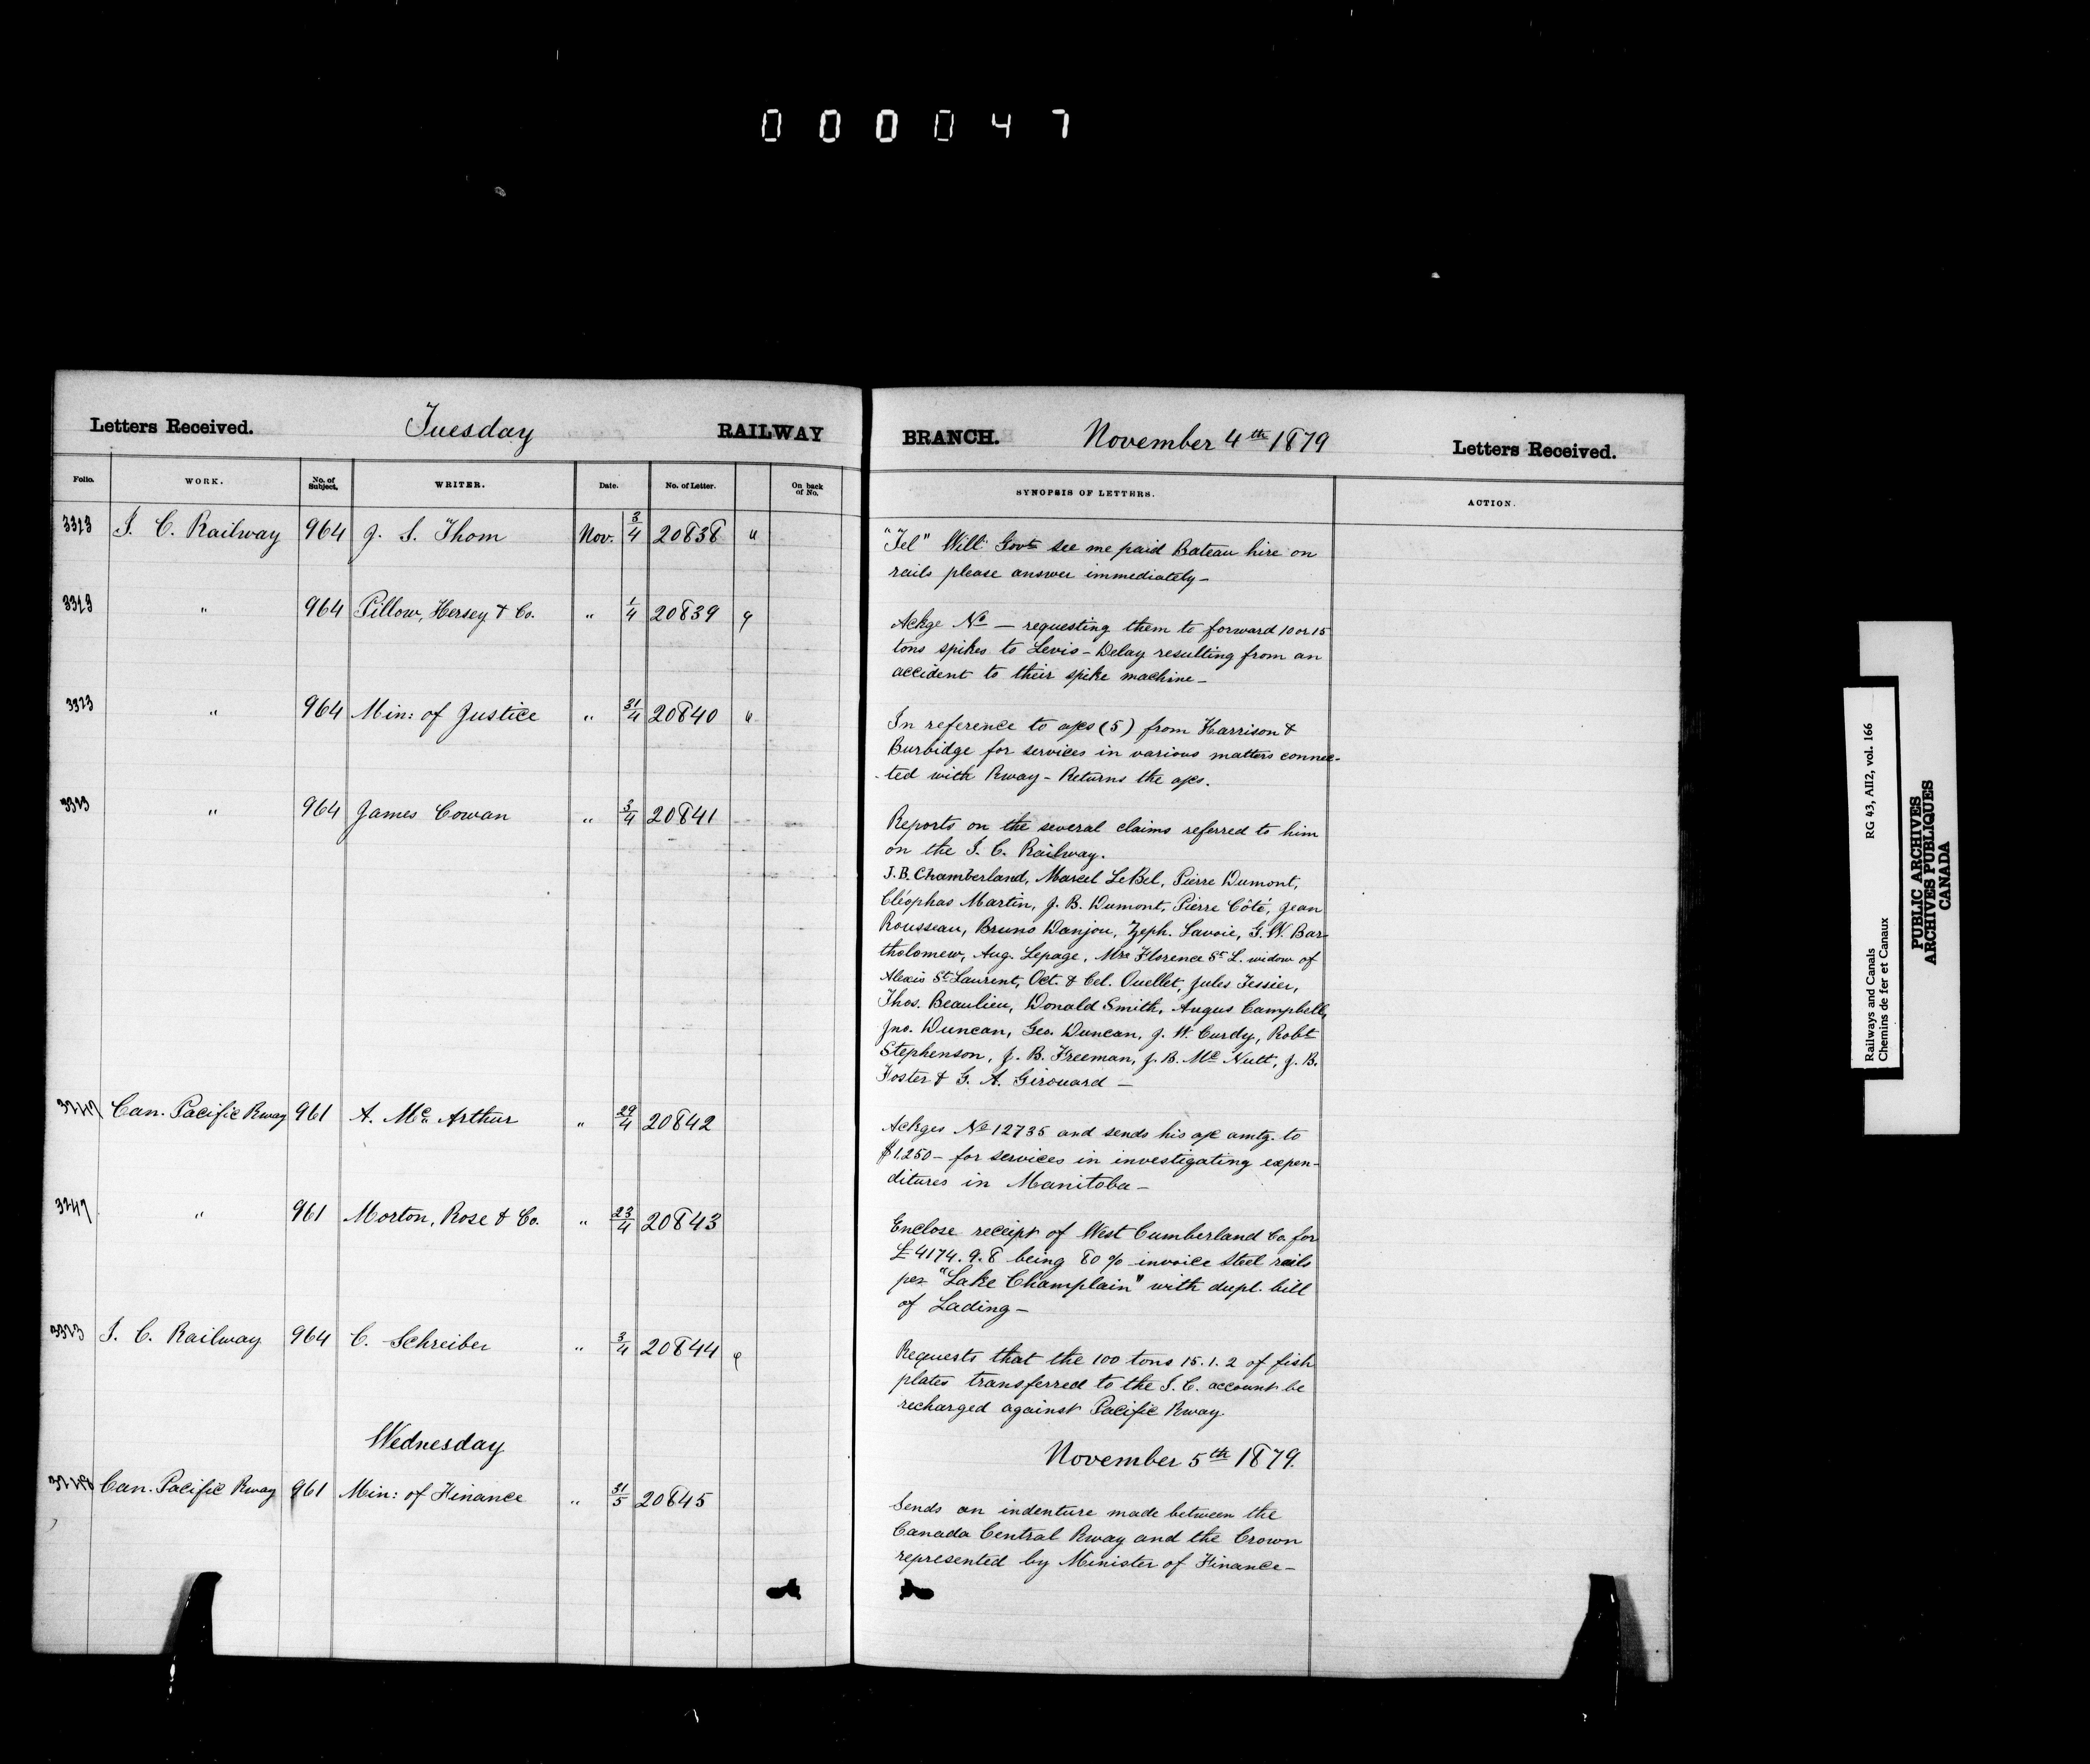 000047
Letters Received. Tuesday RAILWAY BRANCH. November 4th 1879 Letters Received.
Folio. WORK. No. of Subject. WRITER. Date. No. of Letter. On back of No. SYNOPSIS OF LETTERS. ACTION.
3313 I. C. Railway 964 J. S. Thom Nov. 3/4 20838 "
"Tel" Will Govt see me paid Bateau hire on
rails please answer immediately—
3313 " 964 Pillow, Hersey & Co. " 1/4 20839
Ackge No — requesting them to forward 10 or 15
tons spikes to Levis - Delay resulting from an
accident to their spike machine—
3323 " 964 Min: of Justice " 31/4 20840 "
In reference to a/cs (5) from Harrison &
Burbidge for services in various matters connec-
-ted with Rway - Returns the a/cs.
3323 " 964 James Cowan " 3/4 20841
Reports on the several claims referred to him
on the I. C. Railway.
J. B. Chamberland, Marcel LeBel, Pierre Dumont,
Cléophas Martin, J. B. Dumont, Pierre Côté, Jean
Rousseau, Bruno Danjou, Zeph. Savoie, G. W. Bar-
tholomew, Aug. Lepage, Mrs Florence St L. widow of
Alexis St Laurent, Oct. & Cel. Ouellet, Jules Tessier,
Thos. Beaulieu, Donald Smith, Angus Campbell,
Jno. Duncan, Geo. Duncan, J. W. Curdy, Robt
Stephenson, J. B. Freeman, J. B. Mc Nutt, J. B.
Foster & G. A. Girouard —
3247 Can. Pacific Rway 961 A. Mc Arthur " 29/4 20842
Ackges No 12735 and sends his a/c amtg. to
$1,250 — for services in investigating expen-
ditures in Manitoba—
3247 " 961 Morton, Rose & Co. " 23/4 20843
Enclose receipt of West Cumberland Co. for
£4174.9.8 being 80% invoice Steel rails
per "Lake Champlain" with dupl. bill
of Lading—
3323 I. C. Railway 964 C. Schreiber " 3/4 20844
Requests that the 100 tons 15.1.2 of fish
plates transferred to the I. C. account be
recharged against Pacific Rway.
Wednesday November 5th 1879.
3248 Can. Pacific Rway 961 Min: of Finance " 31/5 20845
Sends an indenture made between the
Canada Central Rway and the Crown
represented by Minister of Finance—
Railways and Canals RG 43, AII2, vol. 166
Chemins de fer et Canaux
PUBLIC ARCHIVES
ARCHIVES PUBLIQUES
CANADA